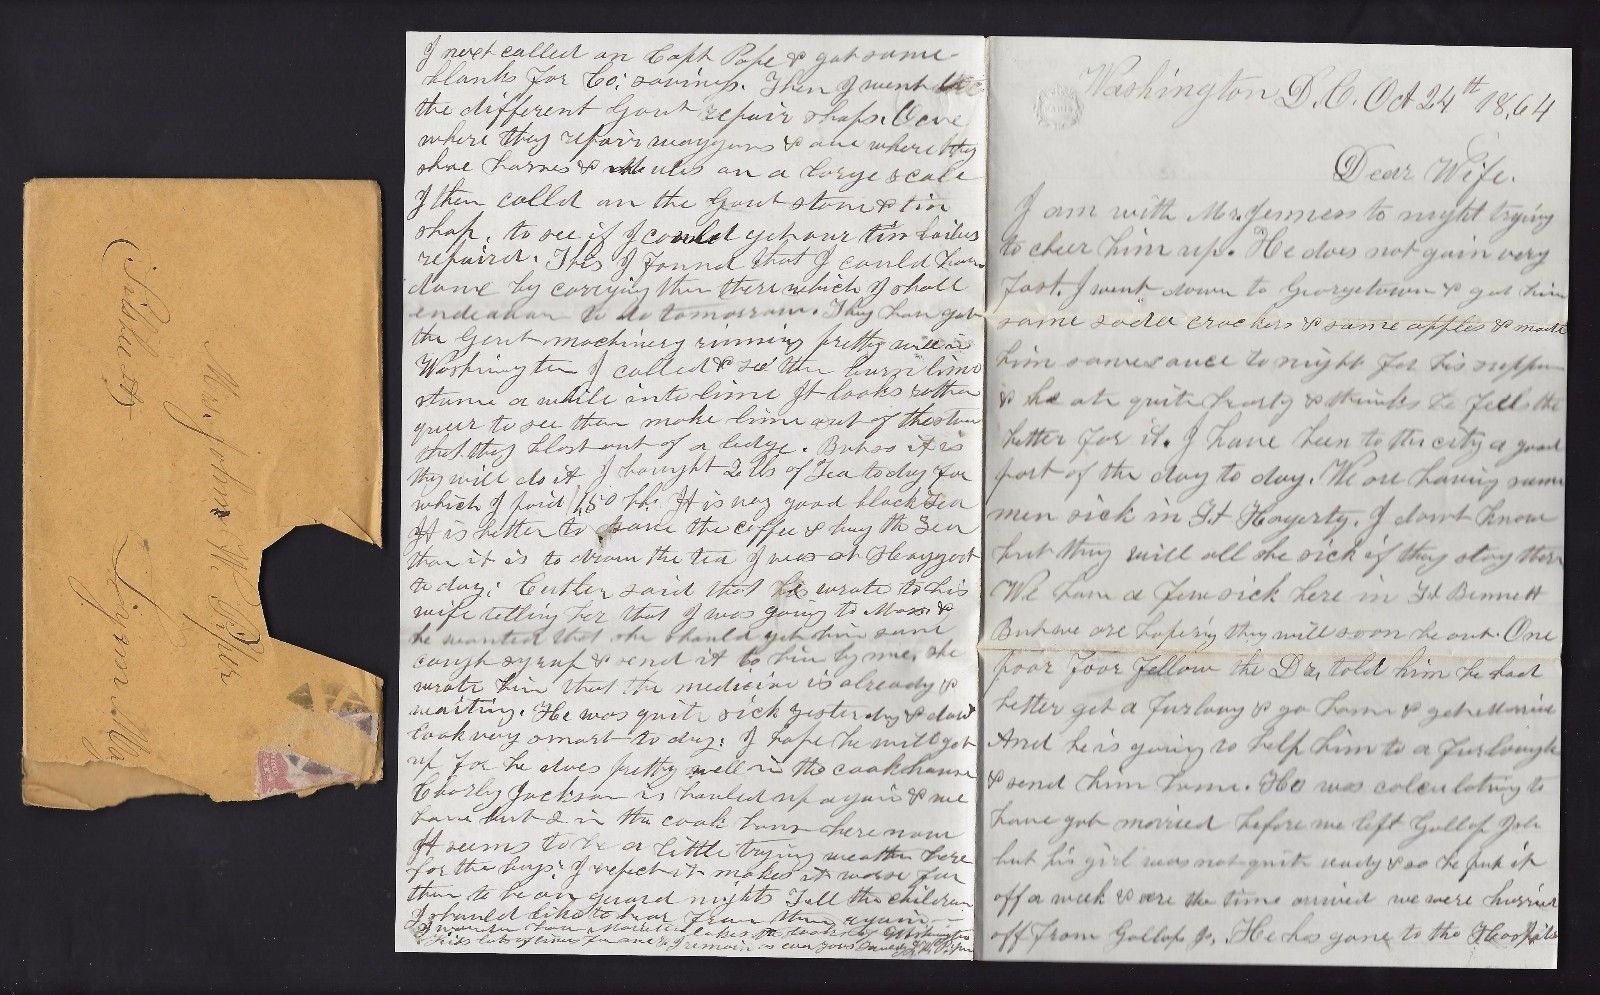 Washington D.C. Oct 24th 18,64
Dear Wife.
I am with Mr. Jenness to night trying
to cheer him up. He does not gain very
fast. I went down to Georgetown & got him
some soda crackers & some apples & made
him some sauce to night for his supper
& he ate quite hearty & thinks he feels the
better for it. I have been to the city a good
part of the day to day. We are having some
men sick in Ft Hagerty. I dont know
but they will all be sick if they stay there
We have a few sick here in Ft Bennett
But we are hoping they will soon be out. One
poor foor fellow the Dr, told him he had
better get a furlong & go home & get married
And he is going to help him to a furlough
& send him home. He was calculating to
have got married before we left Gallop Isle
but his girl was not quite ready & so he put it
off a week & ere the time arrived we were hurried
off from Gallop Is. He has gone to the Hospital
I next called on Capt Pope & got some
blanks for Co; savings. Then I went
the different Govt repair shops. One
where they repair waggons & one where they
shoe horses & mules on a large scale
I then calld on the Govt stove & tin
shop, to see if I could get our tin boilers
repaird. This I found that I could have
done by carrying them there which I shall
endeavour to do tomorrow. They have got
the Govt machinery running pretty well in
Washington I called & see them burn lime
stone a while into lime It looks rather
queer to see them make lime out of the stone
that they blast out of a ledge. But so it is
they will do it I bought 2 lbs of Tea to day for
which I paid 1,50 lb. It is very good black Tea
It is better to save the coffee & buy the Tea
than it is to draw the tea I was at Haggert
to day; Cutler said that he wrote to his
wife telling her that I was going to Mass &
he wanted that she should get him some
cough syrup & send it to him by me. she
wrote him that the medicine is already &
waiting. He was quite sick yesterday & dont
look very smart to day; I hope he will get
up for he does pretty well in the cookhouse
Charley Jackson is hauled up again & we
have but 2 in the cook house here now
It seems to be a little trying weather here
for the boys; I expect it makes it worse for
them to be on guard nights Tell the children
I should like to hear from them again
I wonder how
I remain as ever yours
Mrs, Johnn W. Piper